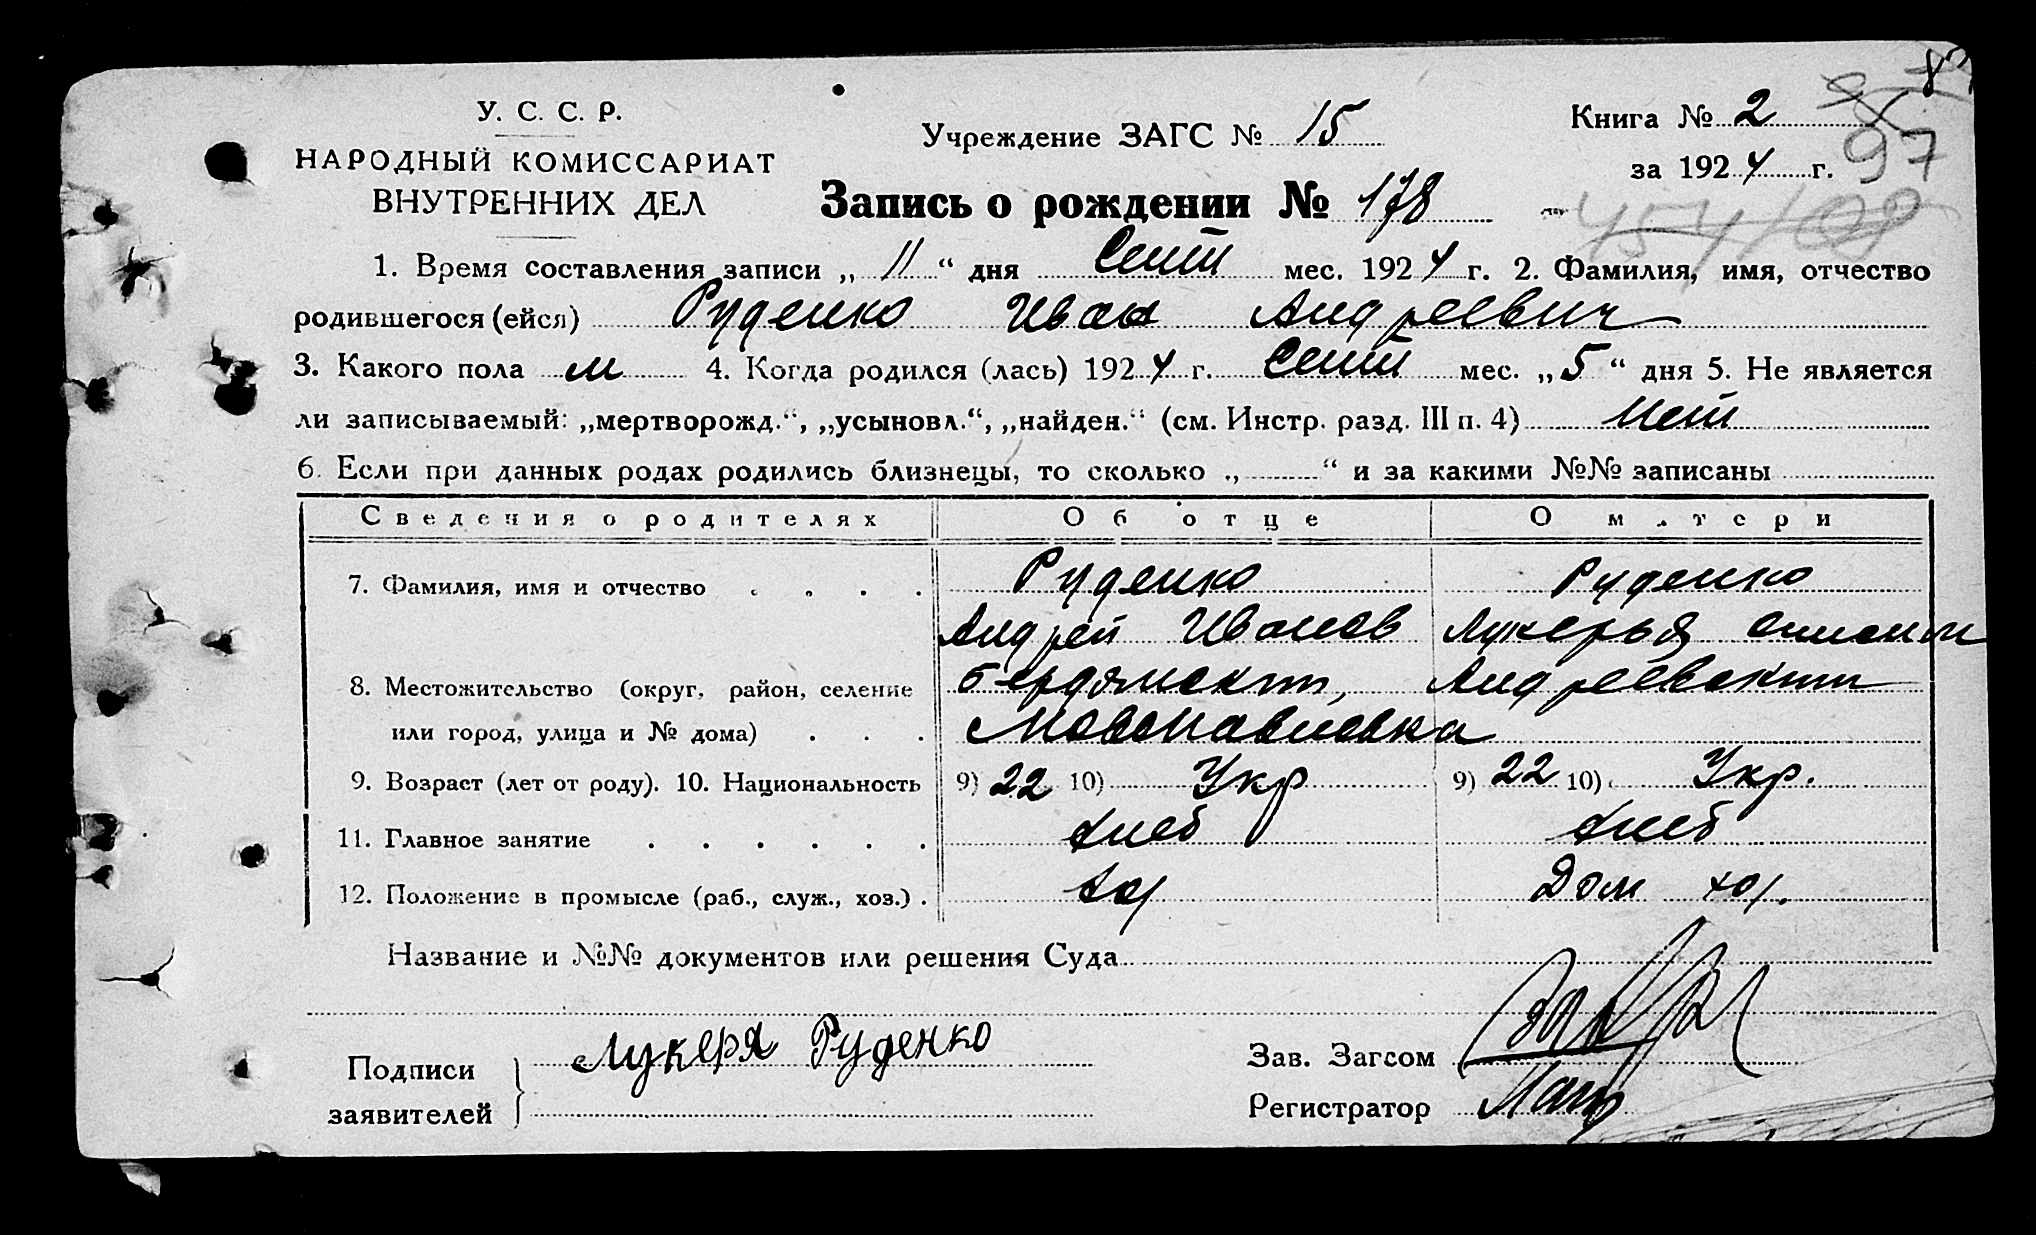 У. С. С. Р.
НАРОДНЫЙ КОМИССАРИАТ
ВНУТРЕННИХ ДЕЛ
Учреждение ЗАГС № 15
Книга № 2
за 1924 г.
97
Запись о рождении № 178
1. Время составления записи „ 11 “ дня Сент мес. 1924 г. 2. Фамилия, имя, отчество
родившегося (ейся) Руденко Иван Андреевич
3. Какого пола м 4. Когда родился (лась) 1924 г. Сент мес. „ 5 “ дня 5. Не является
ли записываемый: „мертворожд.“, „усыновл.“, „найден.“ (см. Инстр. разд. III п. 4) Нет
6. Если при данных родах родились близнецы, то сколько „ “ и за какими №№ записаны
Сведения о родителях Об отце О матери
7. Фамилия, имя и отчество Руденко Руденко
Андрей Иванов Лукерья
8. Местожительство (округ, район, селение Бердянский, Андреевский
или город, улица и № дома) Новопавловка
9. Возраст (лет от роду). 10. Национальность 9) 22 10) Укр 9) 22 10) Укр.
11. Главное занятие хлеб хлеб
12. Положение в промысле (раб., служ., хоз.) хоз Дом хоз.
Название и №№ документов или решения Суда
Подписи заявителей Лукеря Руденко
Зав. Загсом
Регистратор